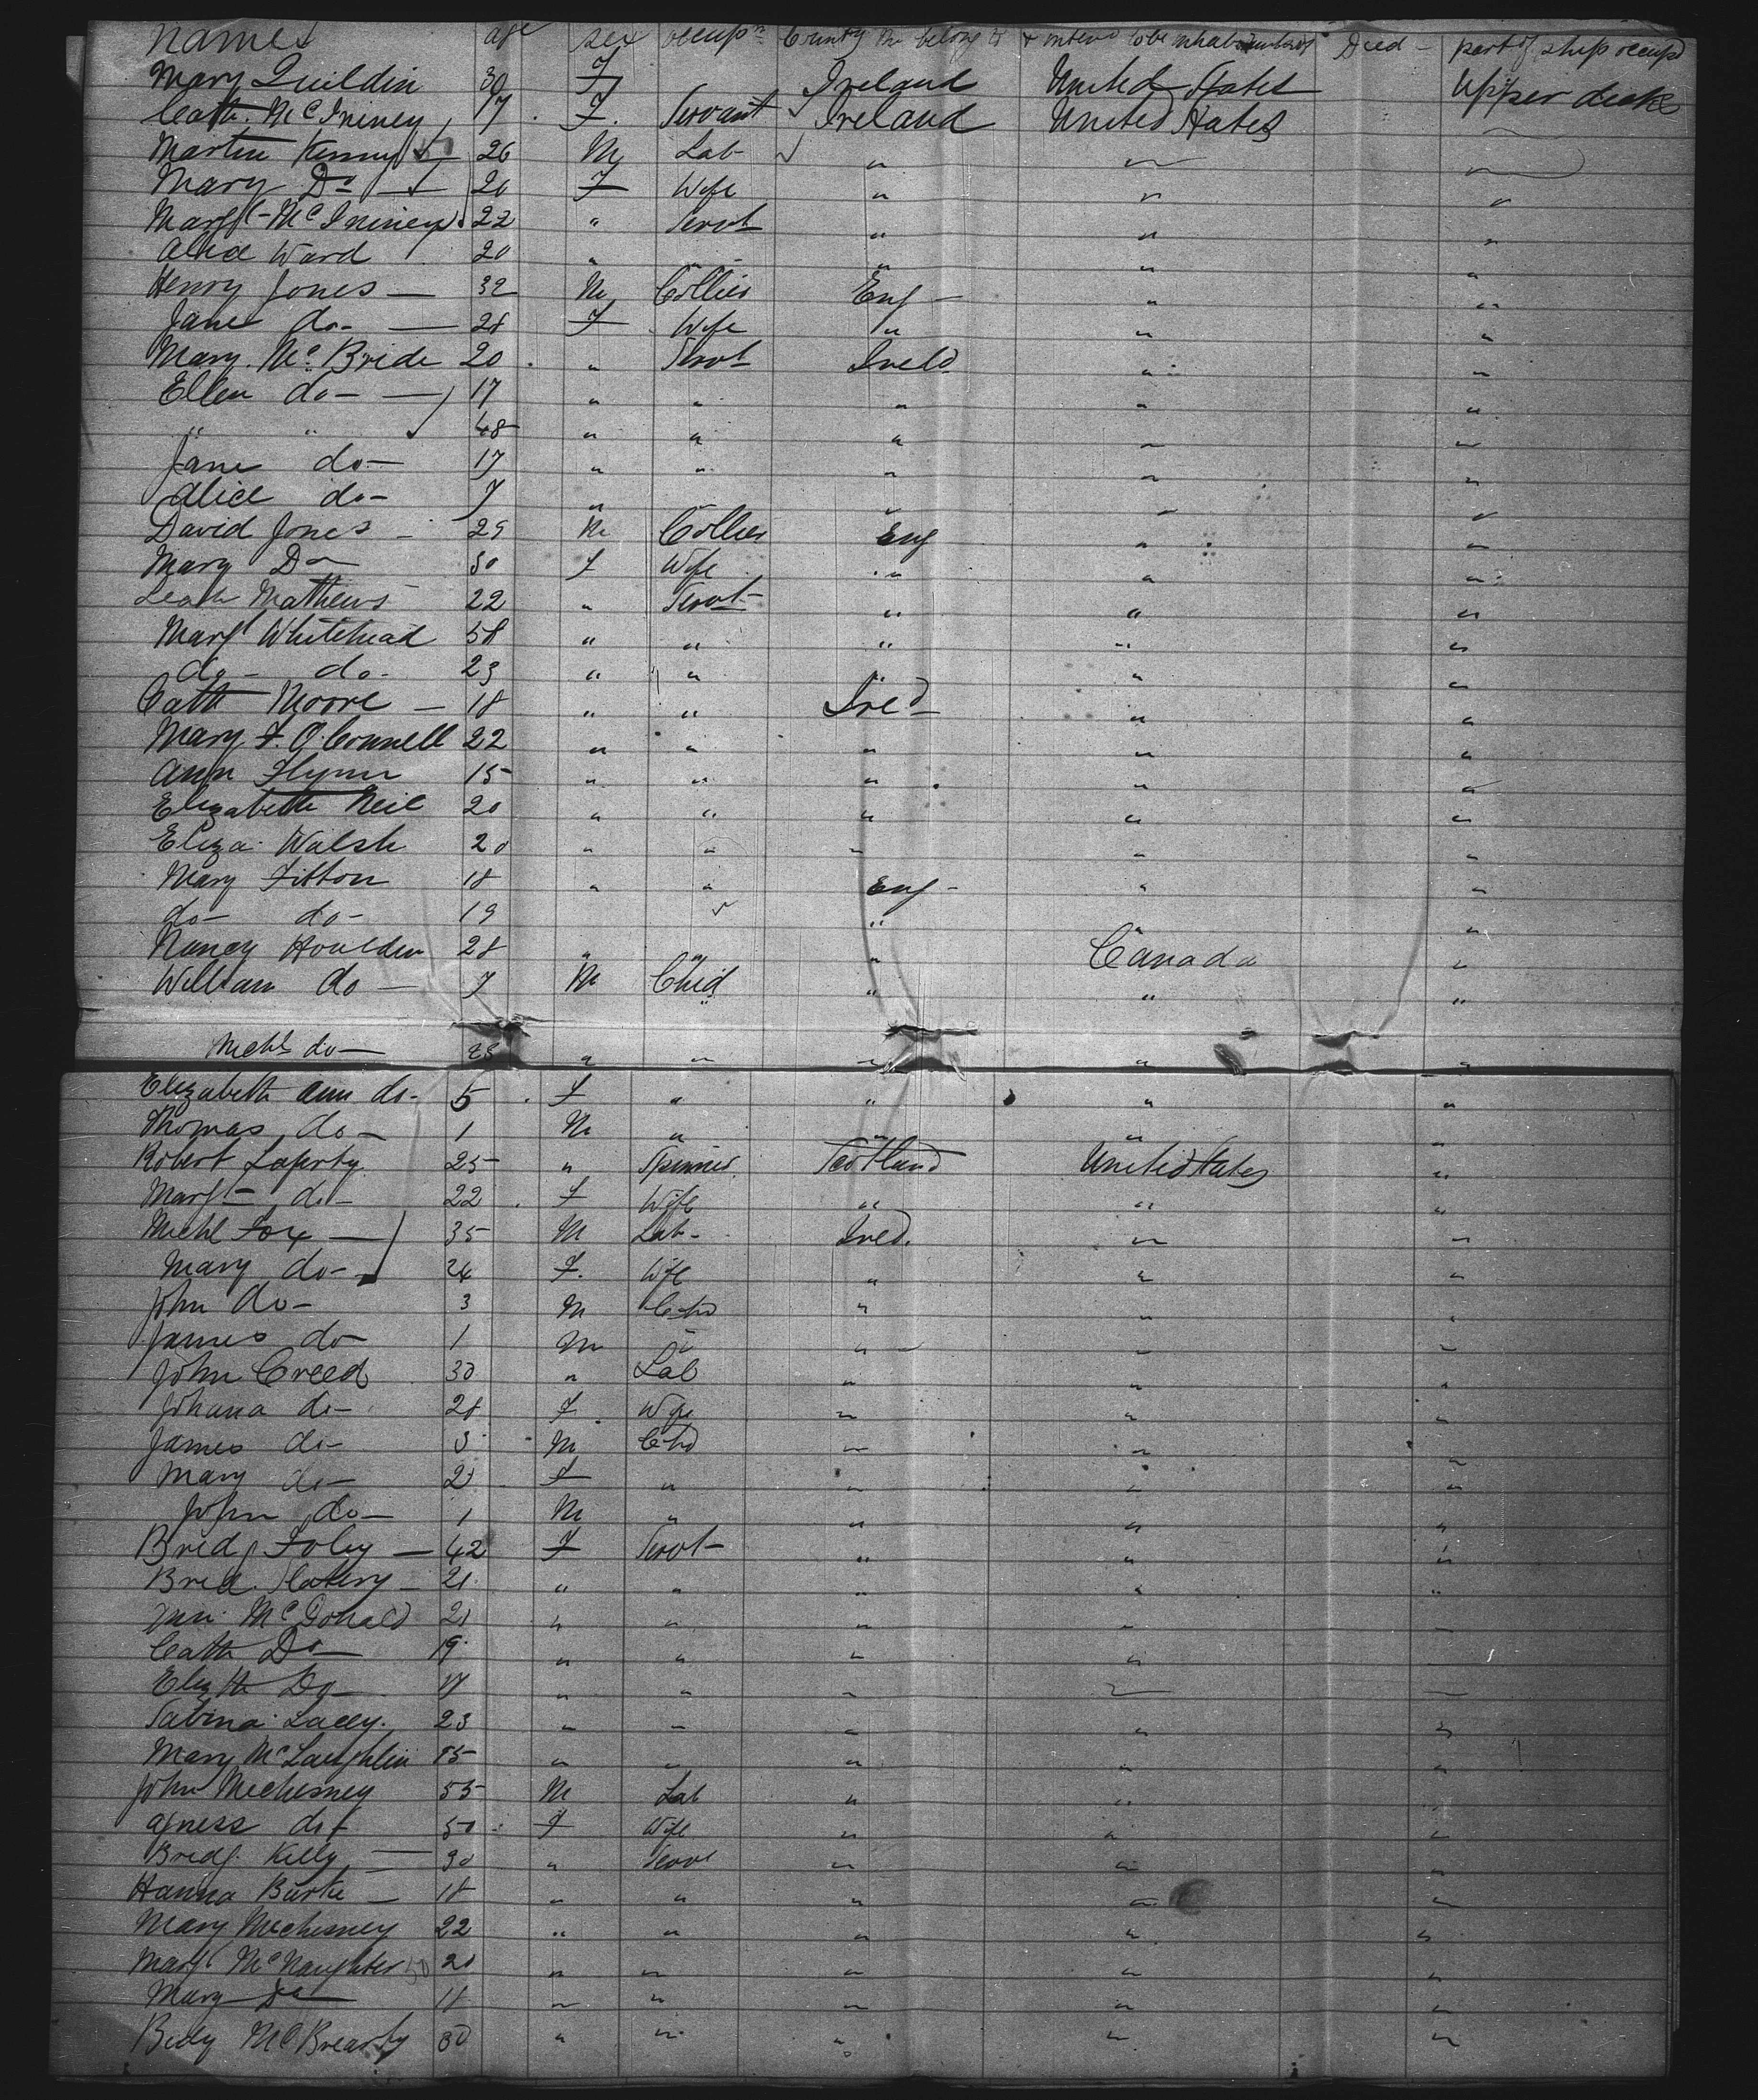 Names age sex occupn County the belong to & intend to be inhabitants of Died - part of ship occupd
Mary Quildin 30 F Ireland United States Upper deck
Cath. McIniney 17 F. Servant Ireland United States
Martin Kenny 26 M Lab " " "
Mary Do 20 F Wife " " "
Margt McIniney 22 " Servt " " "
Alice Ward 20 " " " " "
Henry Jones 32 M Collier Eng - " "
Jane do - 28 F Wife " " "
Mary McBride 20 " Servt Ireld " "
Ellen do - 17 " " " " "
" " 48 " " " " "
Jane do - 17 " " " " "
Alice do - 7 " " " " "
David Jones - 29 M Collier Eng " "
Mary Do 30 F Wife " " "
Leah Mathews 22 " Servt " " "
Margt Whitehead 58 " " " " "
do - do - 23 " " " " "
Cath Moore - 18 " " Ired " "
Mary F. O'Connell 22 " " " " "
Ann Flynn 15 " " " " "
Elizabeth Neil 20 " " " " "
Eliza Walsh 20 " " " " "
Mary Fitton 18 " " Eng - " "
do - do - 19 " " "
Nancy Houlden 28 " " " Canada "
William do - 7 M Chid " " "
Michl do - " " " " "
Elizabeth Ann do - 5 F " " " "
Thomas do - 1 M " " " "
Robert Laferty 25 " Spinner Scotland United States "
Margt do - 22 F Wife " " "
Michl Fox 35 M Lab - Ired. " "
Mary do - 24 F. Wife " " "
John do - 3 M Chd " " "
James do 1 M " " " "
John Creed 30 " Lab " " "
Johana do - 28 F. Wife " " "
James do - 3 M Chd " " "
Mary do - 2 F " " " "
John do - 1 M " " " "
Bridg Foley - 42 F Servt - " " "
Brid. Slatery - 21 " " " " "
McDonald 21 " " " " "
Cath Do 19 " " " " "
Elizth Do - 17 " " " " "
Sabina Lacey. 23 " " " " "
Mary McLaughlin " " " " "
John Mechesney 55 M Lab " " "
Agness do - 50 F Wife " " "
Bridg. Kelly 30 " Servt " " "
Hanna Burke - 18 " " " " "
Mary Mechesney 22 " " " " "
Margt McNaughter 20 " " " " "
Mary Do 18 " " " " "
Bidy McBrearty 30 " " " " "